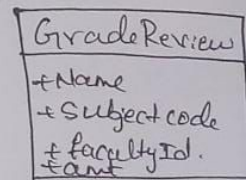 GradeReview
+Name
+Subject code
+facultyId.
+amt